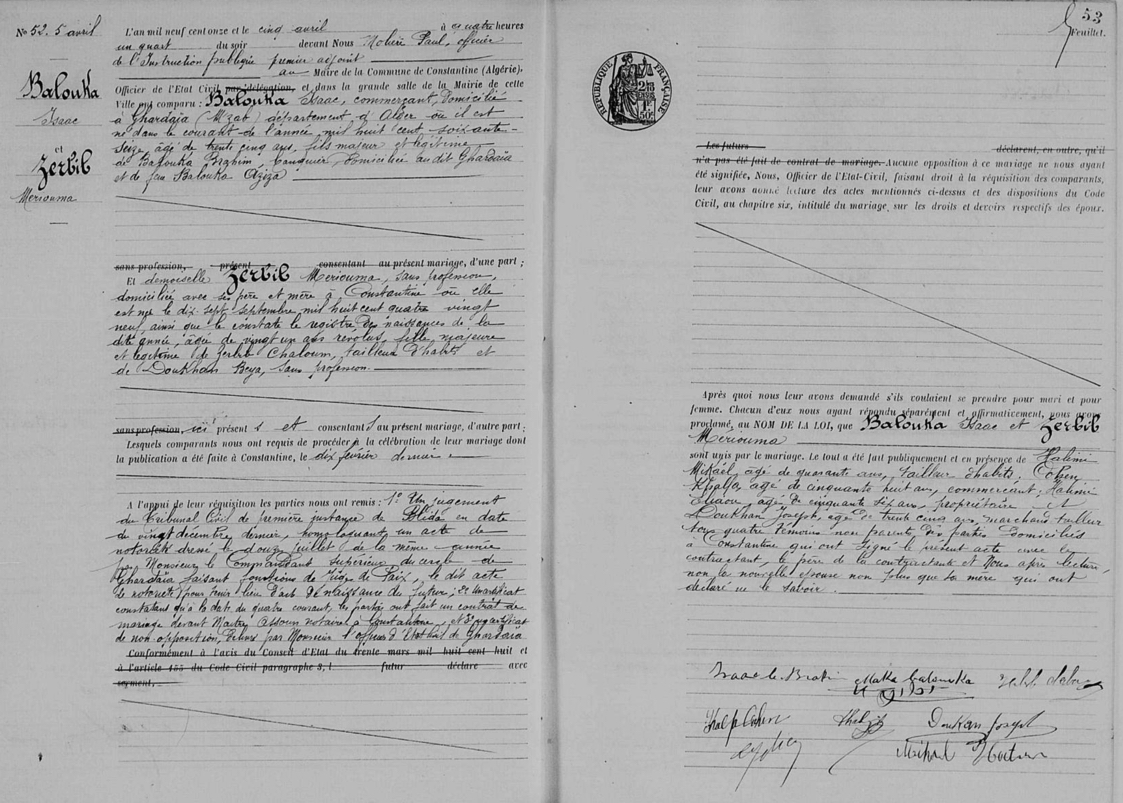 N° 52. 5 avril
Balouka
Isaac
et
Zerbib
Meriouma
L'an mil neuf cent onze et le cinq avril à quatre heures
un quart du soir devant Nous Molière Paul, officier
de l'Instruction publique premier adjoint
au Maire de la Commune de Constantine (Algérie).
Officier de l'Etat Civil par délégation, et dans la grande salle de la Mairie de cette
Ville ont comparu : Balouka Isaac, commerçant, domicilié
à Ghardaïa (Mzab) département d'Alger où il est
né dans le courant de l'année mil huit cent soixante-
seize, âgé de trente cinq ans, fils majeur et légitime
de Balouka Brahim, banquier, domicilié au dit Ghardaïa
et de feu Balouka Aziza
sans profession, présent consentant au présent mariage, d'une part ;
Et demoiselle Zerbib Meriouma, sans profession,
domiciliée avec ses père et mère à Constantine où elle
est née le dix sept septembre mil huit cent quatre vingt
neuf, ainsi que le constate le registre des naissances de la
dite année, âgée de vingt un ans révolus, fille majeure
et légitime de Zerbib Chaloum, tailleur d'habits et
de Doukhan Beya, sans profession.
sans profession, ici présents et consentants au présent mariage, d'autre part ;
Lesquels comparants nous ont requis de procéder à la célébration de leur mariage dont
la publication a été faite à Constantine, le dix février dernier
A l'appui de leur réquisition les parties nous ont remis : 1° Un jugement
du Tribunal Civil de première instance de Blida en date
du vingt décembre dernier, homologuant un acte de
notoriété dressé le douze juillet de la même année
par Monsieur le Commandant Supérieur du cercle de
Ghardaïa faisant fonctions de Juge de Paix, le dit acte
de notoriété pour tenir lieu d'acte de naissance du futur ; 2° Un certificat
constatant qu'à la date du quatre courant, les parties ont fait un contrat de
mariage devant Maître Assoun notaire à Constantine, et 3° un certificat
de non opposition, délivré par Monsieur l'officier d'Etat Civil de Ghardaïa
Conformément à l'avis du Conseil d'Etat du trente mars mil huit cent huit et
à l'article 155 du Code Civil paragraphe 3, l futur déclare avec
serment,
53
Feuillet.
RÉPUBLIQUE FRANÇAISE
Les futurs déclarent, en outre, qu'il
n'a pas été fait de contrat de mariage. Aucune opposition à ce mariage ne nous ayant
été signifiée, Nous, Officier de l'Etat-Civil, faisant droit à la réquisition des comparants,
leur avons donné lecture des actes mentionnés ci-dessus et des dispositions du Code
Civil, au chapitre six, intitulé du mariage, sur les droits et devoirs respectifs des époux.
Après quoi nous leur avons demandé s'ils voulaient se prendre pour mari et pour
femme. Chacun d'eux nous ayant répondu séparément et affirmativement, nous avons
proclamé, au NOM DE LA LOI, que Balouka Isaac et Zerbib
Meriouma
sont unis par le mariage. Le tout a été fait publiquement et en présence de Halimi
Mikaël, âgé de quarante ans, tailleur d'habits, Cohen
Khalfa, âgé de cinquante huit ans, commerçant, Halimi
Eliaou, âgé de cinquante six ans, propriétaire et
Doukhan Joseph, âgé de trente cinq ans, marchand tailleur
tous quatre témoins non parents des parties domiciliés
à Constantine qui ont signé le présent acte avec le
contractant, le père de la contractante et Nous après lecture,
non la nouvelle épouse non plus que sa mère qui ont
déclaré ne le savoir.
Doukan Joseph